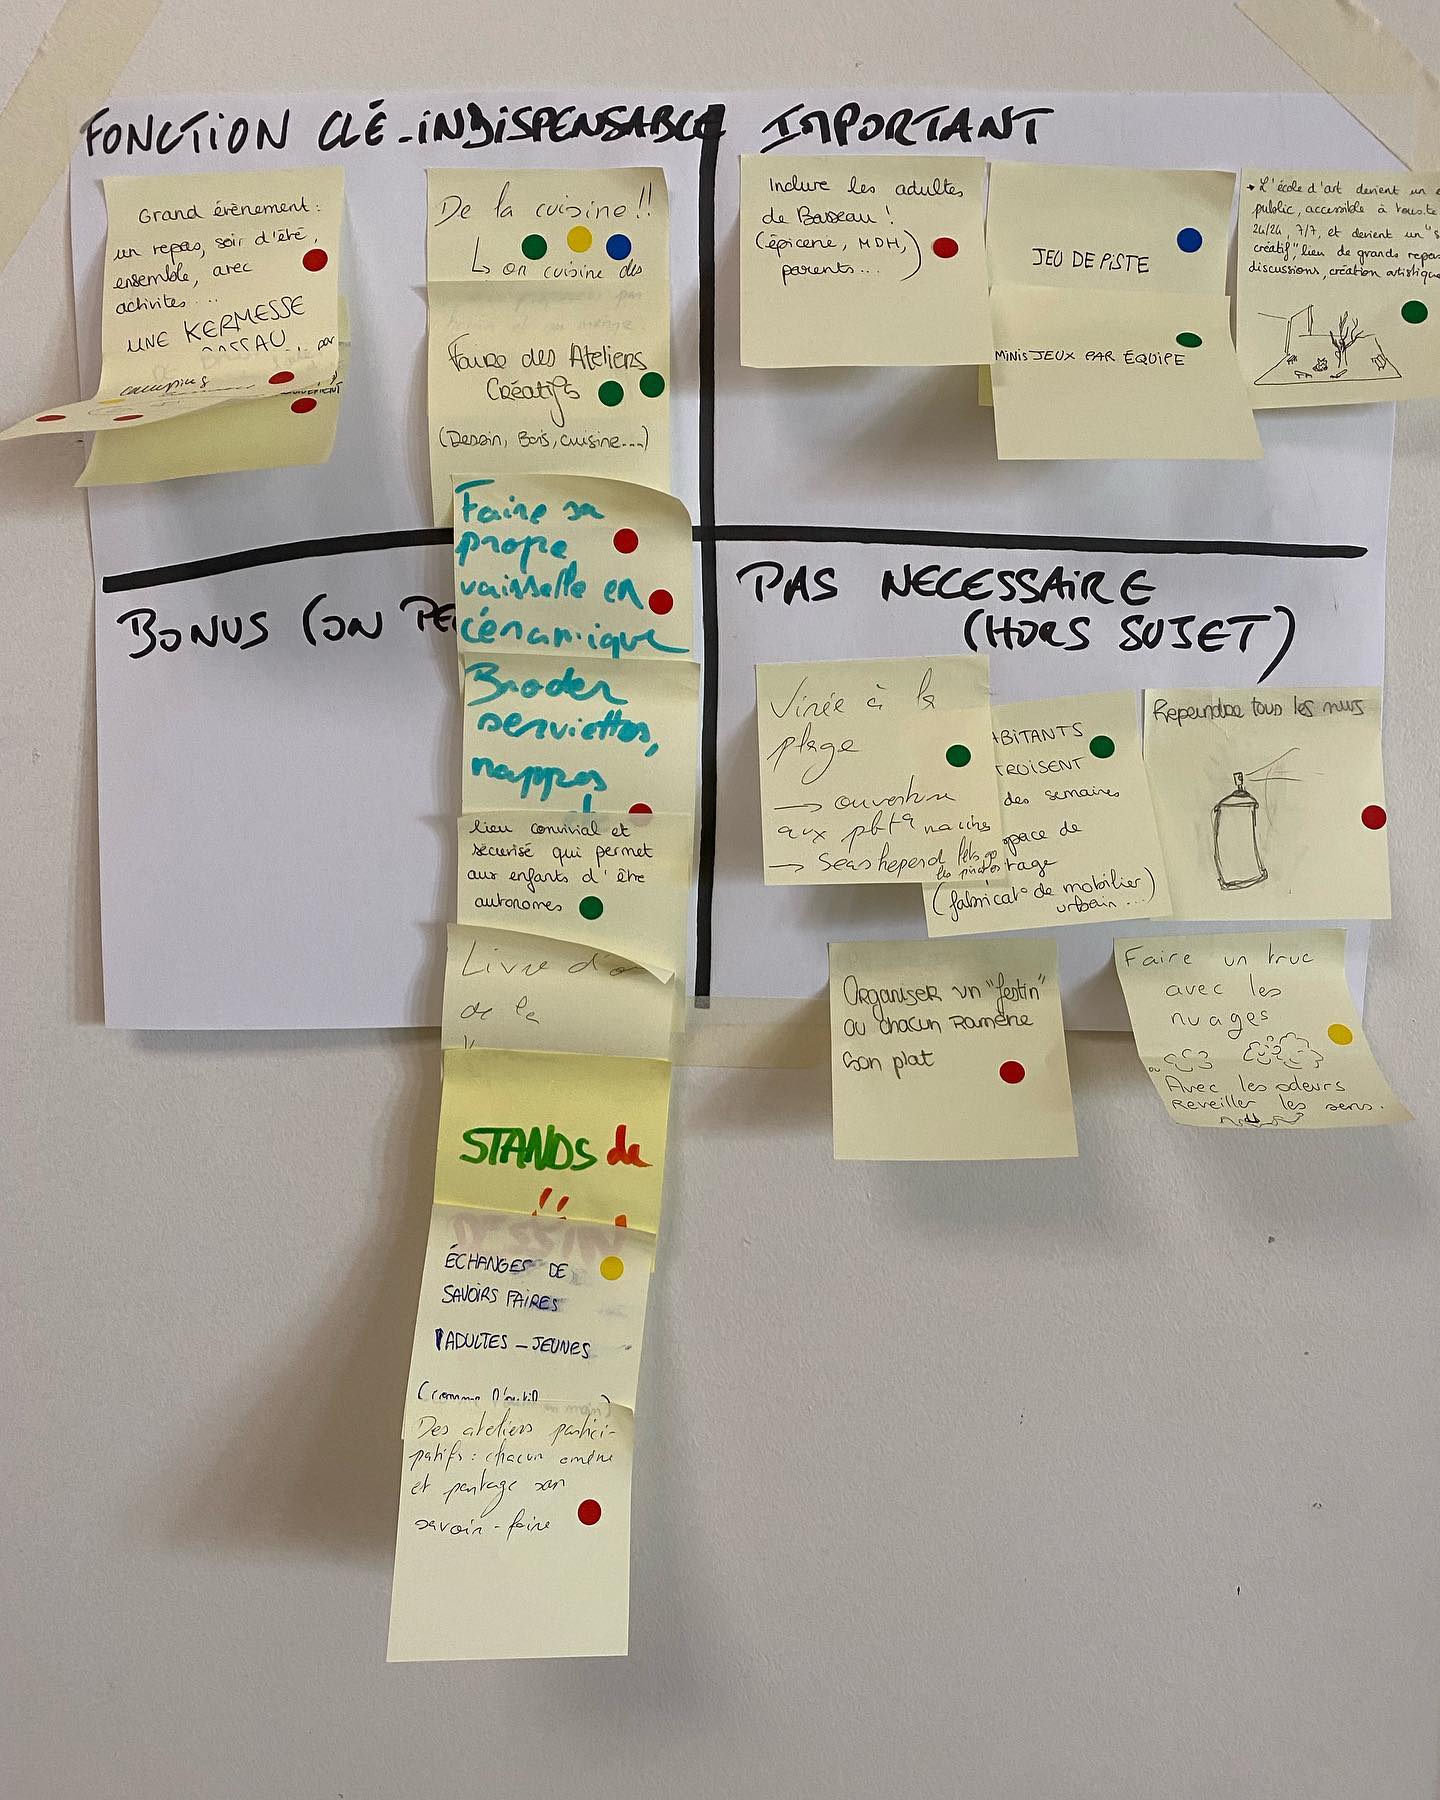 FONCTION CLÉ_INDISPENSABLE
Grand évènement:
un repas, soir d'été,
ensemble, avec
activités...
UNE KERMESSE
De la cuisine!!
↳ on cuisine des
Faire des Ateliers
Créatifs
(Dessin, Bois, cuisine...)
Faire sa
propre
vaisselle en
céramique
Broder
serviettes,
nappes
lieu convivial et
sécurisé qui permet
aux enfants d'être
autonomes
Livre d'or
de la
STANDS de
ÉCHANGES DE
SAVOIRS FAIRES
ADULTES - JEUNES
Des ateliers partici-
patifs: chacun amène
et partage son
savoir-faire
IMPORTANT
Inclure les adultes
de Basseau!
(épicerie, MDH,
parents...)
JEU DE PISTE
MINIS JEUX PAR ÉQUIPE
L'école d'art devient un
public, accessible à
24/24, 7/7, et devient un "
créatif", lieu de grands repas
discussions, création artistique
BONUS (ON
PAS NECESSAIRE
(HORS SUJET)
Virée à la
plage
→ ouverture
aux
→
ABITANTS
TROISENT
des semaines
pace de
tage
(fabricat° de mobilier
urbain...)
Repeindre tous les murs
Organiser un "festin"
ou chacun ramène
son plat
Faire un truc
avec les
nuages
ou
Avec les odeurs
Reveiller les sens.